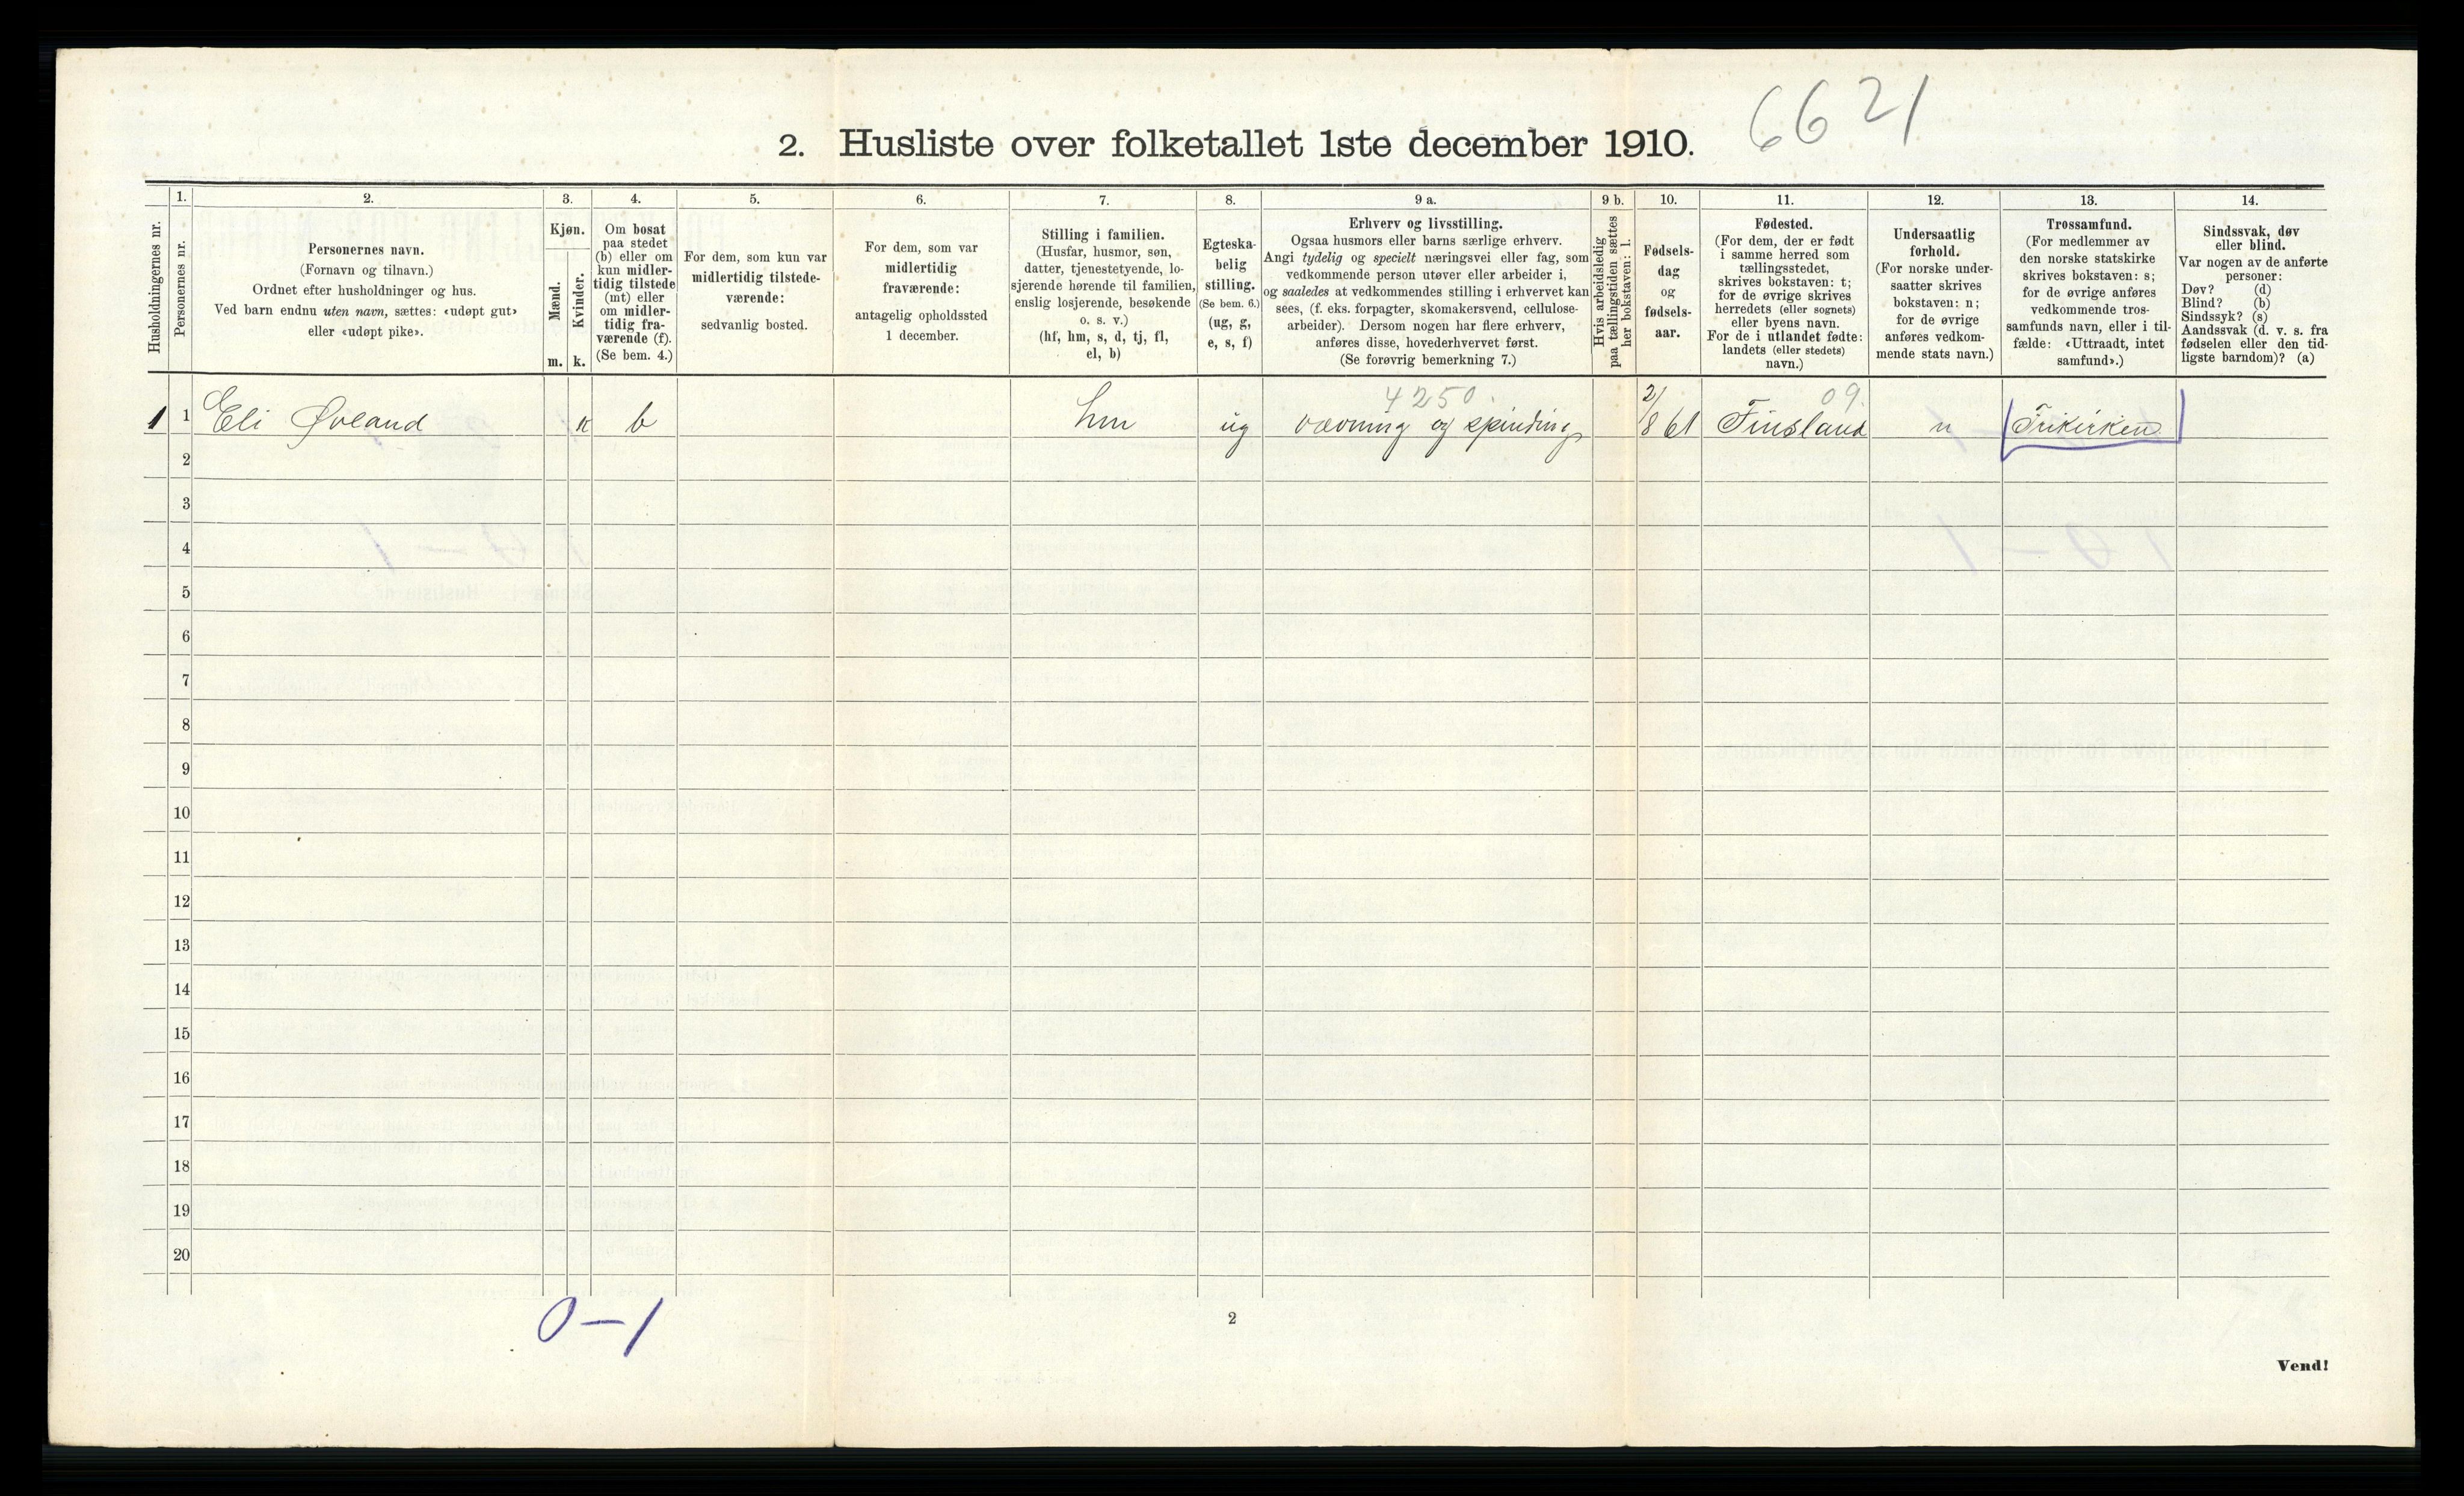 6621
2. Husliste over folketallet 1ste december 1910.
1. 2. 3. 4. 5. 6. 7. 8. 9 a. 9 b. 10. 11. 12. 13. 14.
Husholdningernes nr.
Personernes nr.
Personernes navn.
(Fornavn og tilnavn.)
Ordnet efter husholdninger og hus.
Ved barn endnu uten navn, sættes: «udøpt gut»
eller «udøpt pike».
Kjøn.
Mænd.
Kvinder.
m. k.
Om bosat
paa stedet
(b) eller om
kun midler-
tidig tilstede
(mt) eller
om midler-
tidig fra-
værende (f).
(Se bem. 4.)
For dem, som kun var
midlertidig tilstede-
værende:
sedvanlig bosted.
For dem, som var
midlertidig
fraværende:
antagelig opholdssted
1 december.
Stilling i familien.
(Husfar, husmor, søn,
datter, tjenestetyende, lo-
sjerende hørende til familien,
enslig losjerende, besøkende
o. s. v.)
(hf, hm, s, d, tj, fl,
el, b)
Egteska-
belig
stilling.
(Se bem. 6.)
(ug, g,
e, s, f)
Erhverv og livsstilling.
Ogsaa husmors eller barns særlige erhverv.
Angi tydelig og specielt næringsvei eller fag, som
vedkommende person utøver eller arbeider i,
og saaledes at vedkommendes stilling i erhvervet kan
sees, (f. eks. forpagter, skomakersvend, cellulose-
arbeider). Dersom nogen har flere erhverv,
anføres disse, hovederhvervet først.
(Se forøvrig bemerkning 7.)
Hvis arbeidsledig
paa tællingstiden sættes
her bokstaven: l.
Fødsels-
dag
og
fødsels-
aar.
Fødested.
(For dem, der er født
i samme herred som
tællingsstedet,
skrives bokstaven: t;
for de øvrige skrives
herredets (eller sognets)
eller byens navn.
For de i utlandet fødte:
landets (eller stedets)
navn.)
Undersaatlig
forhold.
(For norske under-
saatter skrives
bokstaven: n;
for de øvrige
anføres vedkom-
mende stats navn.)
Trossamfund.
(For medlemmer av
den norske statskirke
skrives bokstaven: s;
for de øvrige anføres
vedkommende tros-
samfunds navn, eller i til-
fælde: «Uttraadt, intet
samfund».)
Sindssvak, døv
eller blind.
Var nogen av de anførte
personer:
Døv? (d)
Blind? (b)
Sindssyk? (s)
Aandssvak (d. v. s. fra
fødselen eller den tid-
ligste barndom)? (a)
4250. 09.
1 1 Eli Øvland k b hm ug vævning og spinding 2/8 61 Finsland n Frikirken
2
3
4
5
6
7
8
9
10
11
12
13
14
15
16
17
18
19
20
0-1
2
Vend!